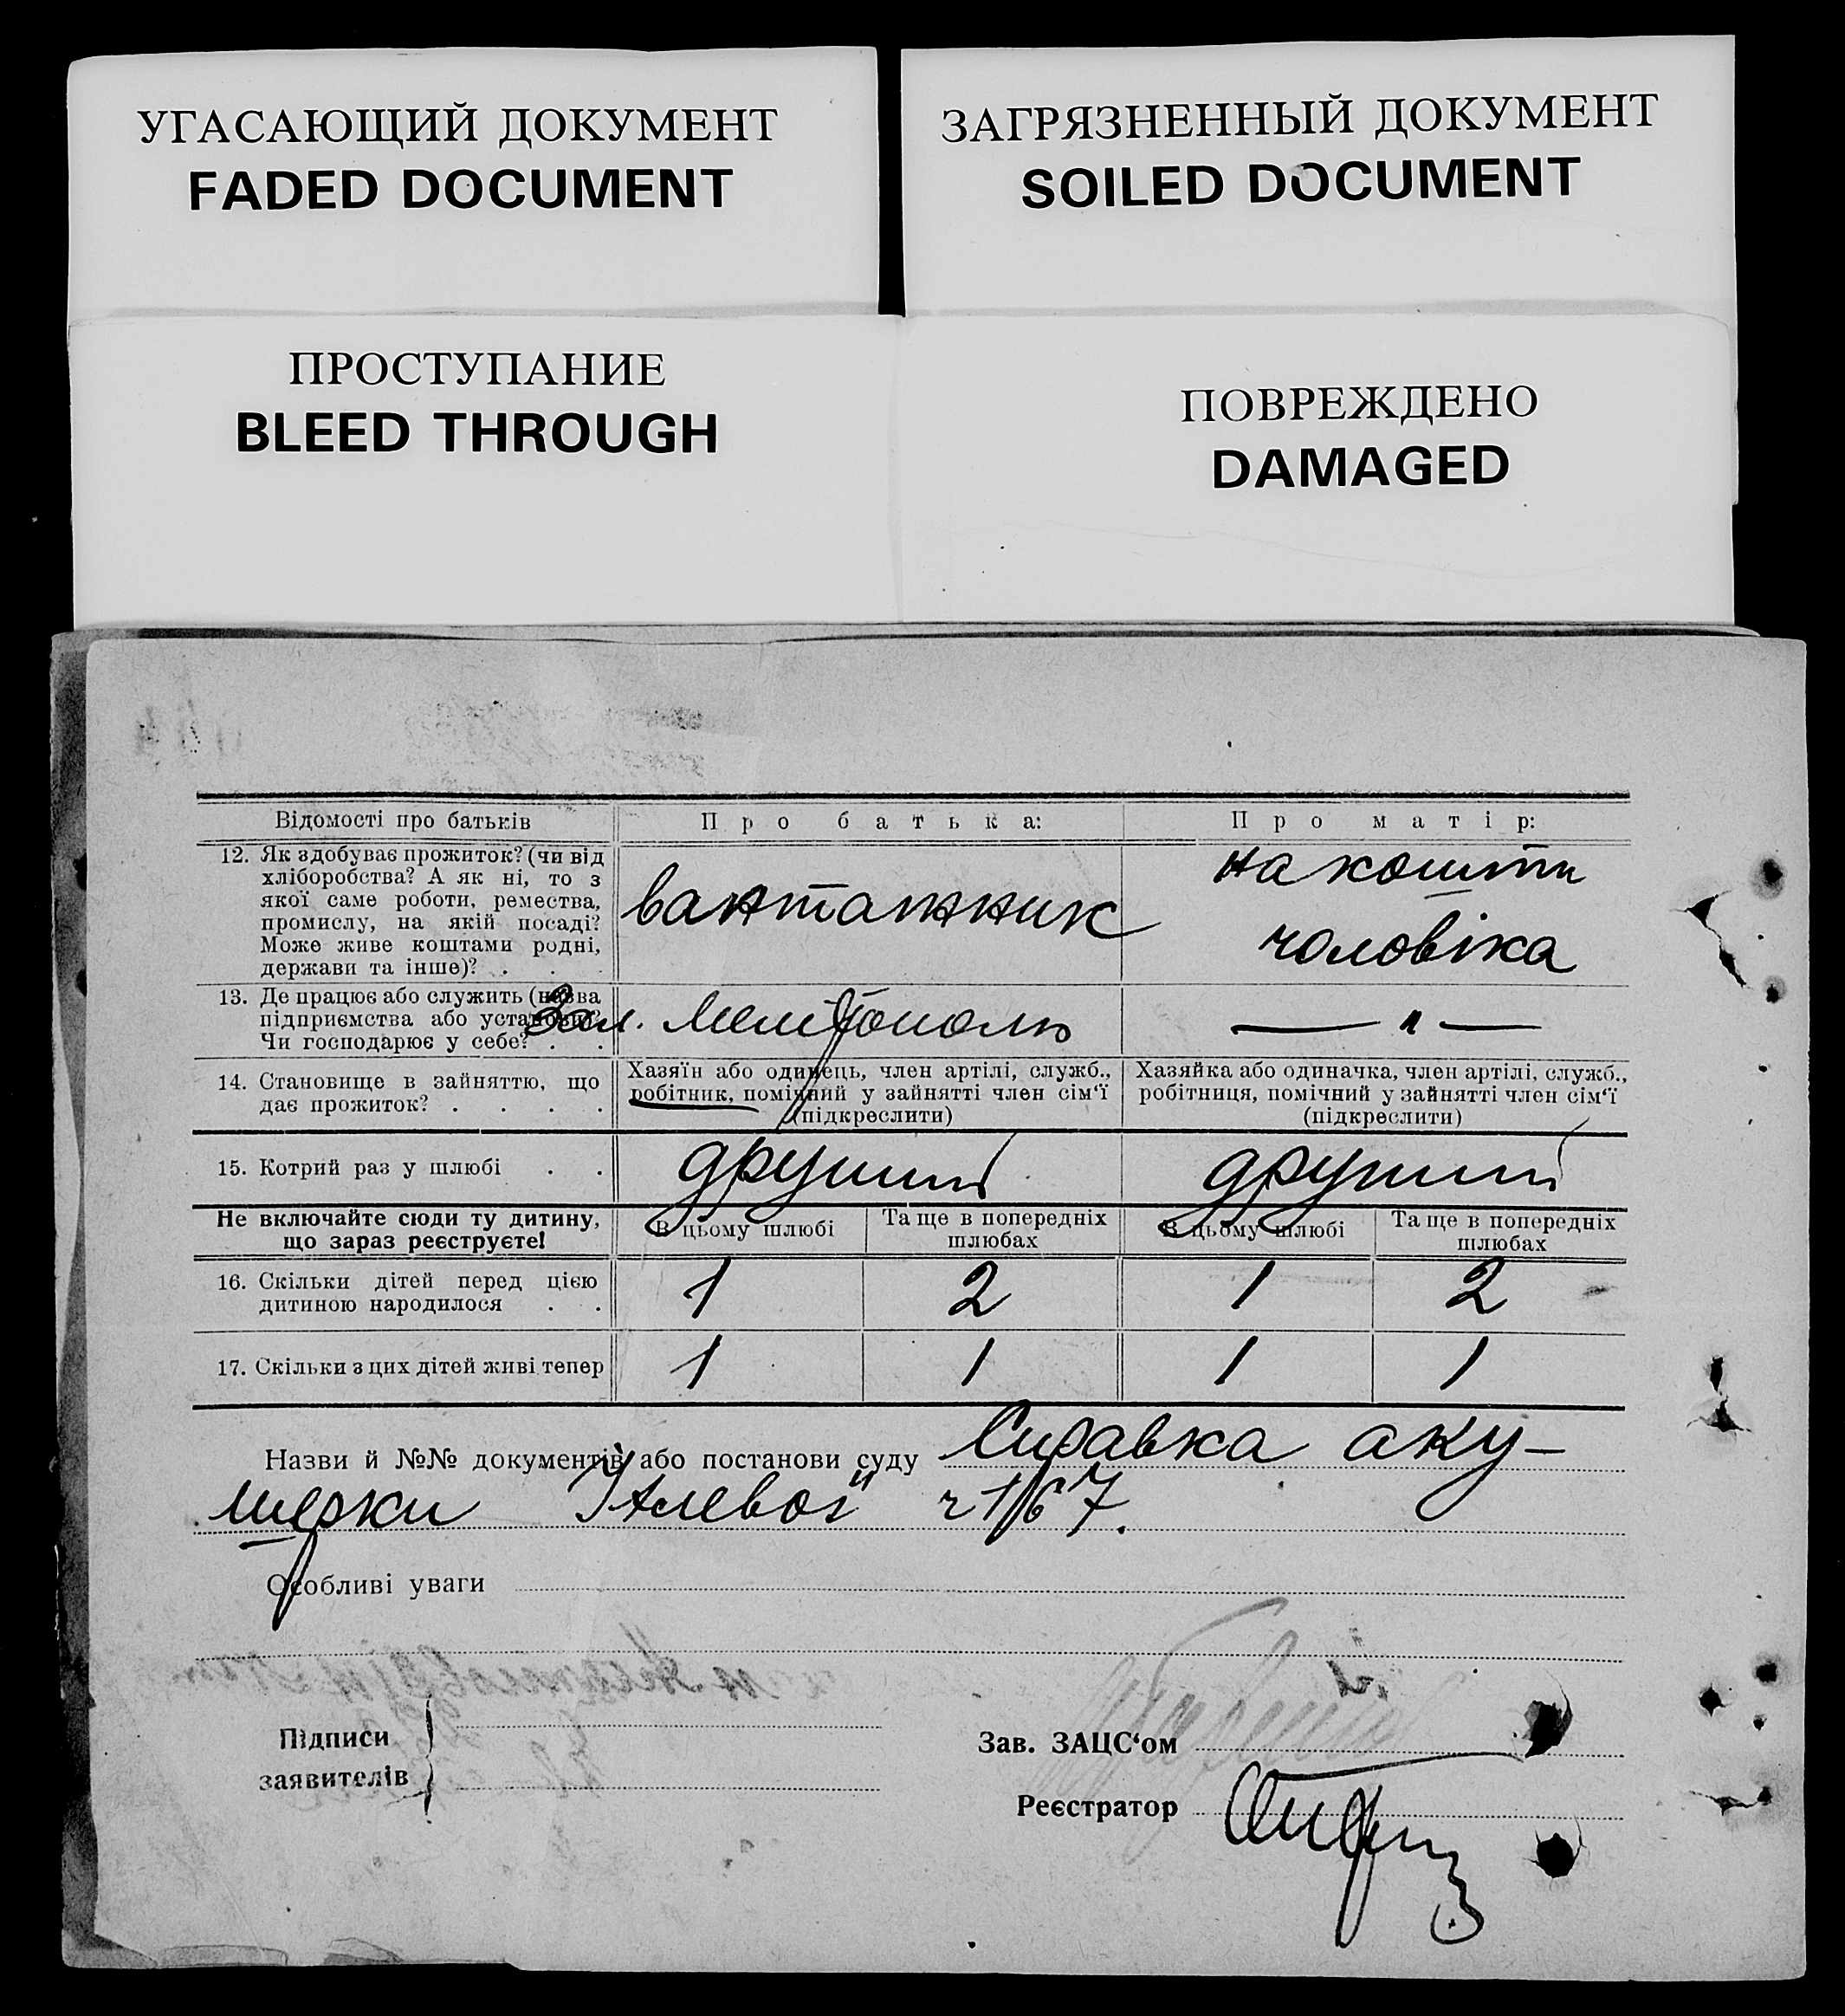 УГАСАЮЩИЙ ДОКУМЕНТ
FADED DOCUMENT
ЗАГРЯЗНЕННЫЙ ДОКУМЕНТ
SOILED DOCUMENT
ПРОСТУПАНИЕ
BLEED THROUGH
ПОВРЕЖДЕНО
DAMAGED
Відомості про батьків
Про батька:
Про матір:
12. Як здобуває прожиток? (чи від
хліборобства? А як ні, то з
якої саме роботи, ремества,
промислу, на якій посаді?
Може живе коштами родні,
держави та інше)? . . .
вантажник
на кошти
чоловіка
13. Де працює або служить (назва
підприємства або установи)?
Чи господарює у себе? . .
Зал. Мелітополь
— " —
14. Становище в зайняттю, що
дає прожиток? . . . .
Хазяїн або одинець, член артілі, служб.,
робітник, помічний у зайнятті член сім'ї
(підкреслити)
Хазяйка або одиначка, член артілі, служб.,
робітниця, помічний у зайнятті член сім'ї
(підкреслити)
15. Котрий раз у шлюбі . .
другий
другий
Не включайте сюди ту дитину,
що зараз реєструєте!
В цьому шлюбі
Та ще в попередніх
шлюбах
В цьому шлюбі
Та ще в попередніх
шлюбах
16. Скільки дітей перед цією
дитиною народилося . .
1
2
1
2
17. Скільки з цих дітей живі тепер
1
1
1
1
Назви й №№ документів або постанови суду Справка аку-
шерки ч 167.
Особливі уваги
Підписи
заявителів
Зав. ЗАЦС'ом
Реєстратор